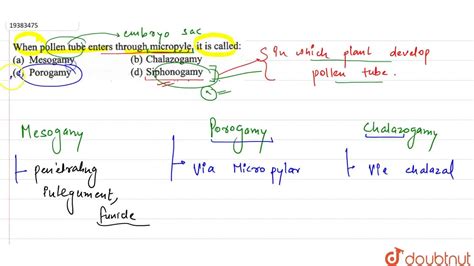 19383475
embryo sac
When pollen tube enters through micropyle, it is called:
(a) Mesogamy (b) Chalazogamy
(c) Porogamy (d) Siphonogamy
In which plant develop
pollen tube.
Mesogany Porogamy Chalazogamy
penetrating via Micropylar vie chalazal
integument,
funicle
doubtnut